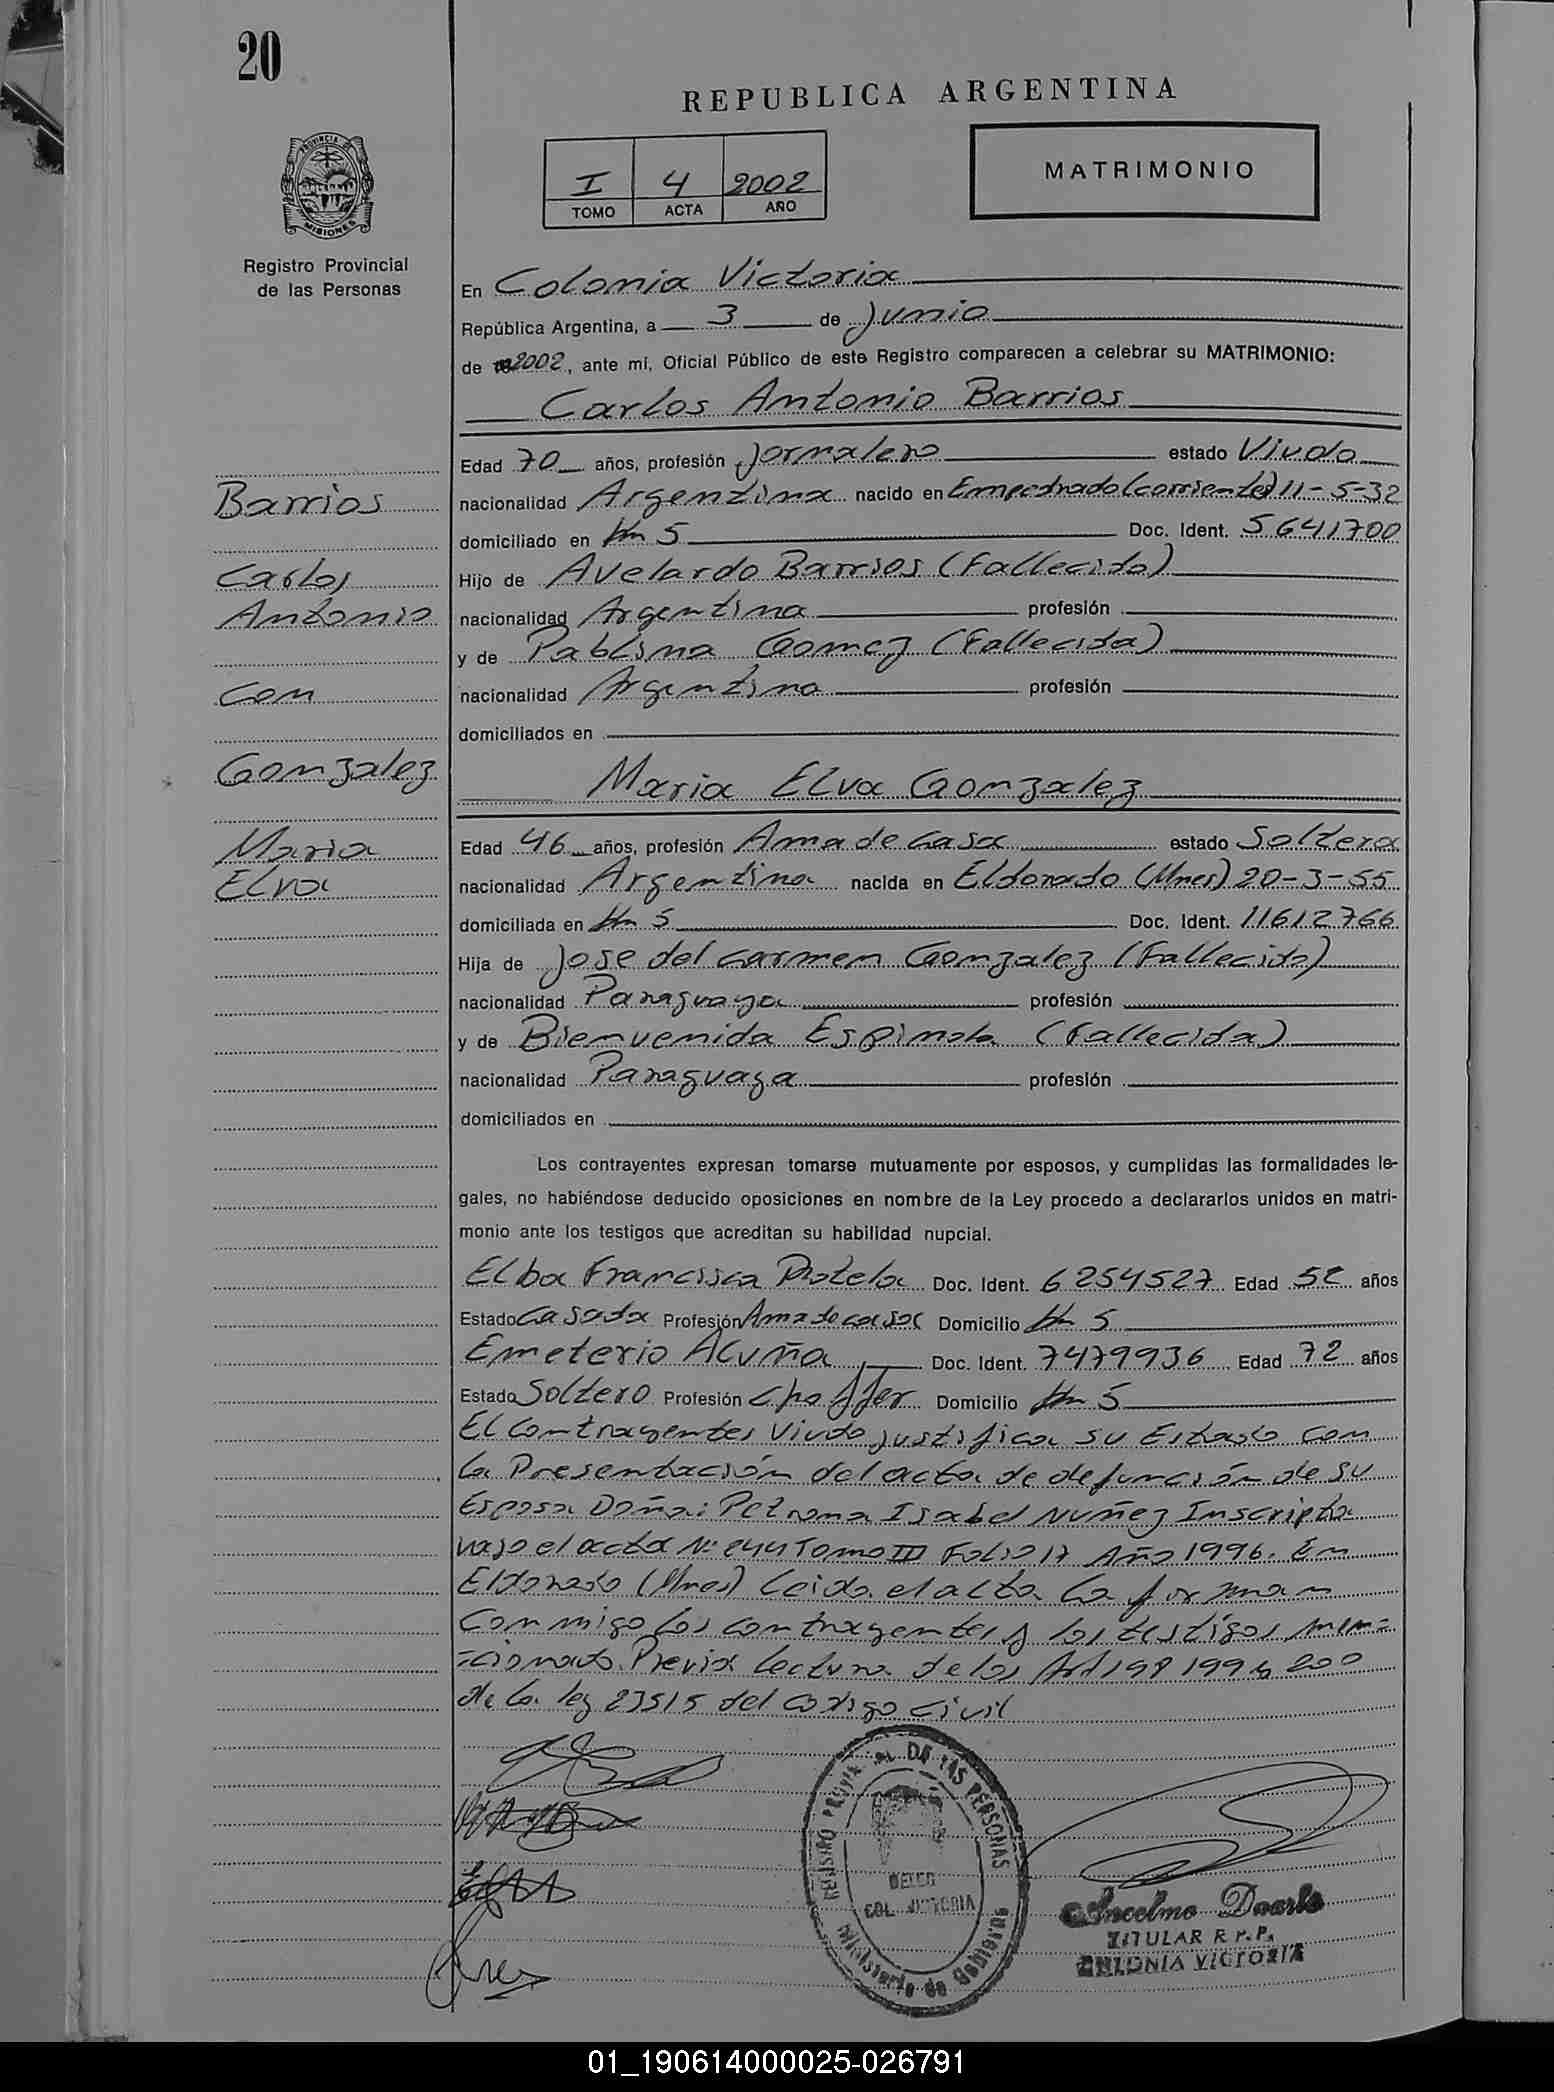 20
REPUBLICA ARGENTINA
PROVINCIA DE MISIONES
I 4 2002
TOMO ACTA AÑO
MATRIMONIO
Registro Provincial
de las Personas
En Colonia Victoria
República Argentina, a 3 de Junio
de 2002, ante mí, Oficial Público de este Registro comparecen a celebrar su MATRIMONIO:
Carlos Antonio Barrios
Edad 70 años, profesión Jornalero estado Viudo
Barrios
nacionalidad Argentina nacido en Empedrado (corrientes) 11-5-32
domiciliado en Km 5 Doc. Ident. 5641700
Carlos
Hijo de Avelardo Barrios (Fallecido)
Antonio
nacionalidad Argentina profesión
y de Pablina Gomez (Fallecida)
con
nacionalidad Argentina profesión
domiciliados en
Gonzalez
Maria Elva Gonzalez
Maria
Edad 46 años, profesión Ama de casa estado Soltera
Elva
nacionalidad Argentina nacida en Eldorado (Mnes) 20-3-55
domiciliada en Km 5 Doc. Ident. 11612766
Hija de Jose del carmen Gonzalez (Fallecido)
nacionalidad Paraguaya profesión
y de Bienvenida Espinola (Fallecida)
nacionalidad Paraguaya profesión
domiciliados en
Los contrayentes expresan tomarse mutuamente por esposos, y cumplidas las formalidades le-
gales, no habiéndose deducido oposiciones en nombre de la Ley procedo a declararlos unidos en matri-
monio ante los testigos que acreditan su habilidad nupcial.
Elba Francisca Rotela Doc. Ident. 6254527 Edad 52 años
Estado Casada Profesión Ama de casa Domicilio Km 5
Emeterio Acuña Doc. Ident. 7479936 Edad 72 años
Estado Soltero Profesión choffer Domicilio Km 5
El contrayentes Viudo justifica su Estado con
la Presentación del acta de defunción de su
Esposa Doña: Petrona Isabel Nuñez Inscripta
vajo el acta Nº 244 Tomo III Folio 17 Año 1996. En
Eldorado (Mnes) Leida el acta la firman
conmigo los contrayentes y los testigos men=
=cionado. Previa lectura de los Art 198 199 y 200
de la ley 23515 del codigo civil
REGISTRO PROVINCIAL DE LAS PERSONAS
COL. VICTORIA
Ministerio de Gobierno
Ancelmo Duarte
TITULAR R.P.P.
COLONIA VICTORIA
01_190614000025-026791